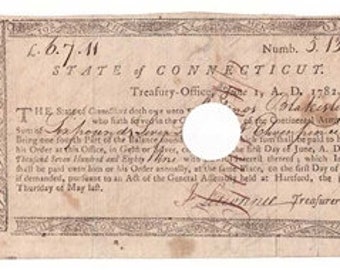 £. 6. 7. 11 Numb. 513
STATE of CONNECTICUT.
Treasury-Office, June 1, A. D. 1782.
THE State of Connecticut doth owe unto
who hath served in the Continental Army
Sum of Six pounds Seven
Being one fourth Part of the Balance found Sum shall be paid to
his Order at this Office, in Gold or Silver, on the first Day of June, A. D.
Thousand Seven Hundred and Eighty Nine with Interest thereof, which In
shall be paid unto him or his Order annually, at the same Place, on the first Day of
if demanded, pursuant to an Act of the General Assembly held at Hartford, the
Thursday of May last.
Treasurer